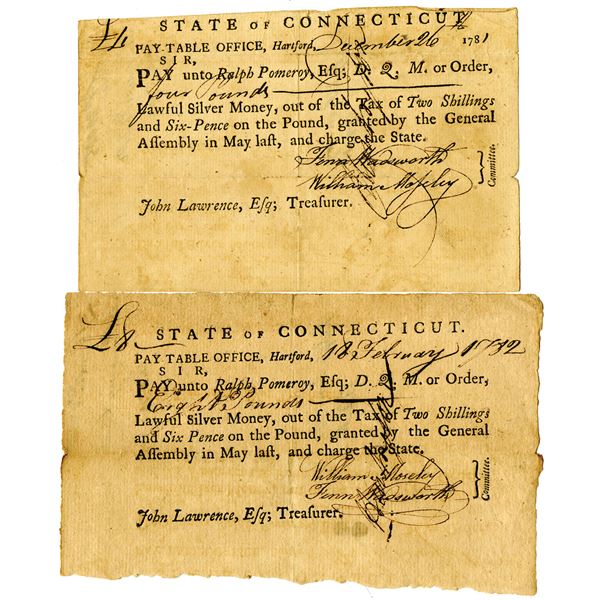 £4
STATE OF CONNECTICUT
PAY-TABLE OFFICE, Hartford, December 26th 1781
SIR,
PAY unto Ralph Pomeroy, Esq; D. Q. M. or Order,
four Pounds
Lawful Silver Money, out of the Tax of Two Shillings
and Six-Pence on the Pound, granted by the General
Aſſembly in May laſt, and charge the State.
Fenn Wadsworth
William Moſeley
Committee.
John Lawrence, Eſq; Treaſurer.
£8
STATE OF CONNECTICUT.
PAY-TABLE OFFICE, Hartford, 18 February 1782
SIR,
PAY unto Ralph Pomeroy, Eſq; D. Q. M. or Order,
Eight Pounds
Lawful Silver Money, out of the Tax of Two Shillings
and Six Pence on the Pound, granted by the General
Aſſembly in May laſt, and charge the State.
William Moseley
Fenn Wadsworth
Committee.
John Lawrence, Eſq; Treaſurer.